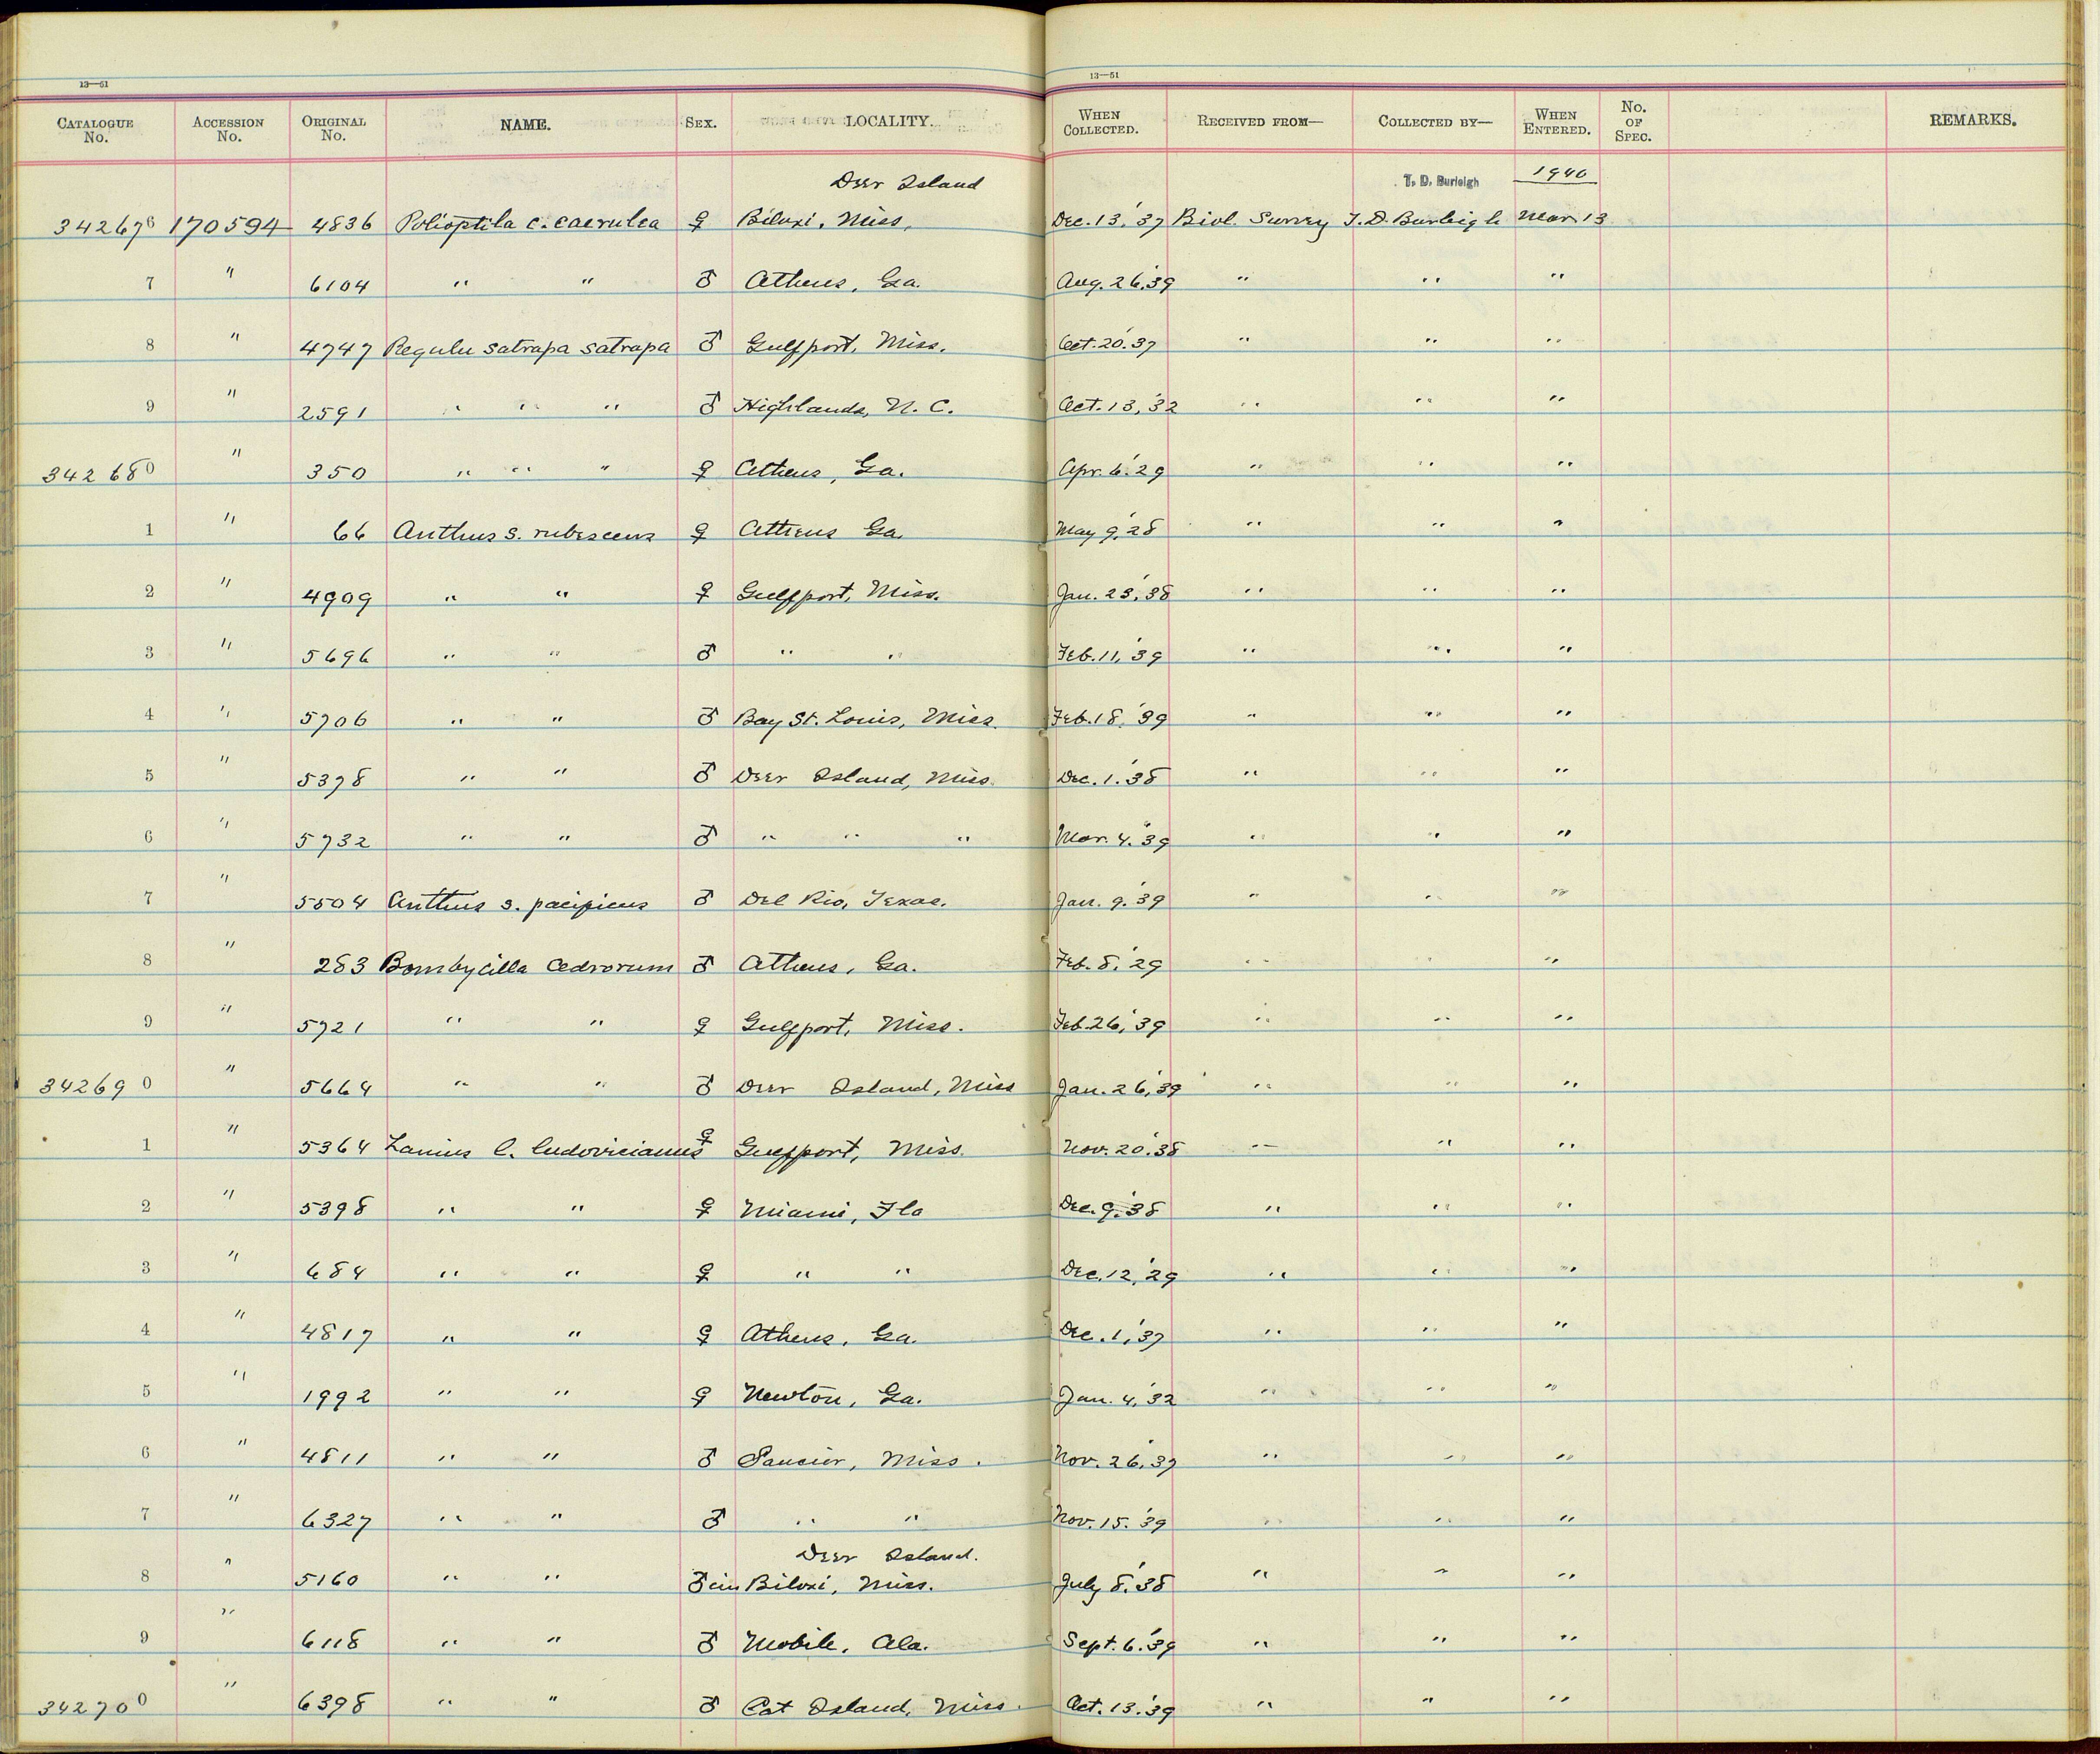 13—51 13—51
CATALOGUE No. ACCESSION No. ORIGINAL No. NAME. SEX. LOCALITY. WHEN COLLECTED. RECEIVED FROM— COLLECTED BY— WHEN ENTERED. No. OF SPEC. REMARKS.
Deer Island T. D. Burleigh 1940
342676 170594 4836 Polioptila c. caerulea ♀ Biloxi, Miss. Dec. 13, '37 Biol. Survey T. D. Burleigh Mar. 13
7 " 6104 " " ♂ Athens, Ga. Aug. 26, '39 " " "
8 " 4747 Regulu satrapa satrapa ♂ Gulfport, Miss. Oct. 20, '37 " " "
9 " 2591 " " " ♂ Highlands, N. C. Oct. 13, '32 " " "
342680 " 350 " " " ♀ Athens, Ga. Apr. 6, '29 " " "
1 " 66 Anthus s. rubescens ♀ Athens Ga. May 9, '28 " " "
2 " 4909 " " ♀ Gulfport, Miss. Jan. 23, '38 " " "
3 " 5696 " " ♂ " " Feb. 11, '39 " " "
4 " 5706 " " ♂ Bay St. Louis, Miss. Feb. 18, '39 " " "
5 " 5378 " " ♂ Deer Island, Miss. Dec. 1, '38 " " "
6 " 5732 " " ♂ " " " Mar. 4, '39 " " "
7 " 5504 Anthus s. pacificus ♂ Del Rio, Texas. Jan. 9, '39 " " "
8 " 283 Bombycilla cedrorum ♂ Athens, Ga. Feb. 8, '29 " " "
9 " 5721 " " ♀ Gulfport, Miss. Feb. 26, '39 " " "
342690 " 5664 " " ♂ Deer Island, Miss Jan. 26, '39 " " "
1 " 5364 Lanius l. ludovicianus ♀ Gulfport, Miss. Nov. 20, '38 " " "
2 " 5398 " " ♀ Miami, Fla Dec. 9, '38 " " "
3 " 684 " " ♀ " " Dec. 12, '29 " " "
4 " 4817 " " ♀ Athens, Ga. Dec. 1, '37 " " "
5 " 1992 " " ♀ Newton, Ga. Jan. 4, '32 " " "
6 " 4811 " " ♂ Saucier, Miss. Nov. 26, '37 " " "
7 " 6327 " " ♂ " " Nov. 15, '39 " " "
Deer Island.
8 " 5160 " " ♂ im Biloxi, Miss. July 8, '38 " " "
9 " 6118 " " ♂ Mobile, Ala. Sept. 6, '39 " " "
342700 " 6398 " " ♂ Cat Island, Miss. Oct. 13, '39 " " "